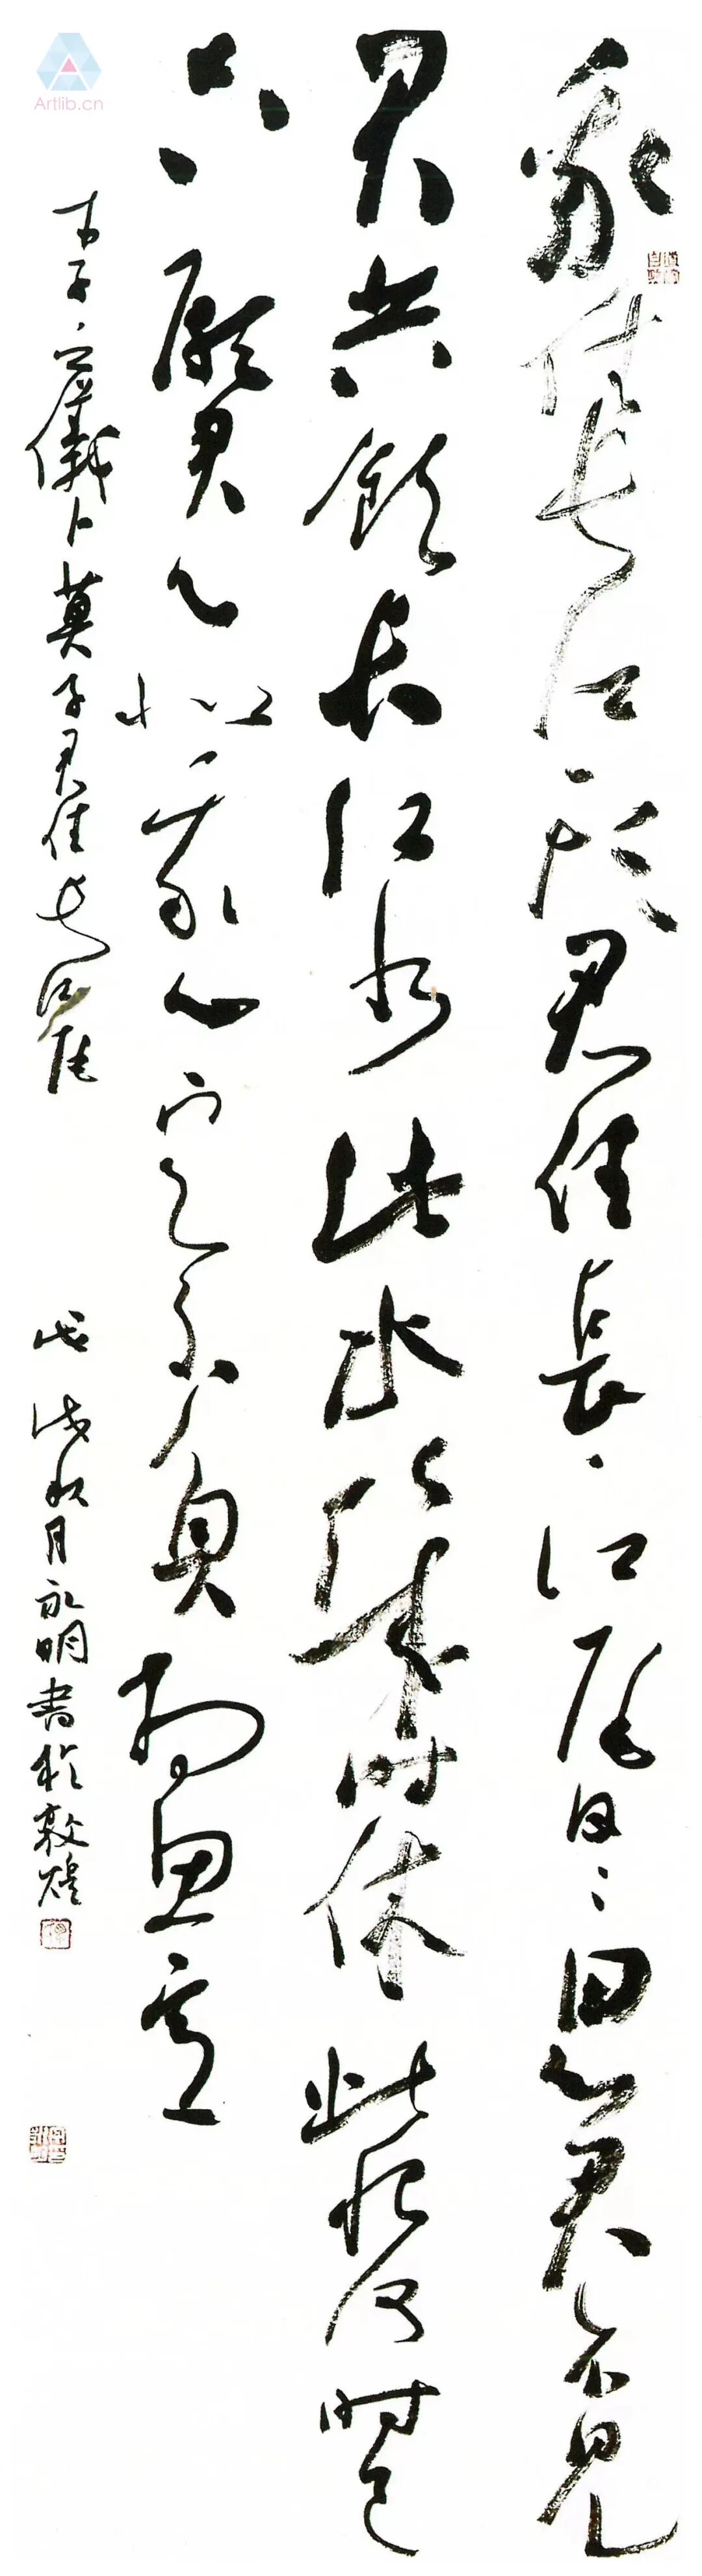 我住长江头君住長江尾日日思君不见
君共飲长江水此水幾时休此恨何时已
只願君心似我心定不負相思意
李之儀卜算子君住长江尾 戊戌秋月永明書於敦煌
Artlib.cn